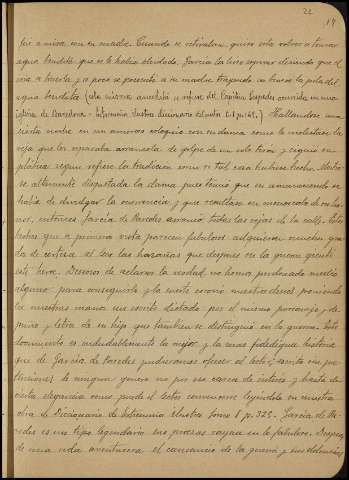 22
14
fue a misa con su madre. Cuando se retiraban, quiso esta volver a tomar
agua bendita que se le habia olvidado. Garcia la hizo esperar diciendo que el
iria a buscarla y a poco se presentó a su madre trayendo en brazos la pila del
agua bendita (esta misma anecdota se refiere del Capitan Cespedes ocurrida en una
iglesia de Barcelona - Extremeños ilustres diccionario del autor t. 1 p. 162.) Hallandose una
cierta noche en un amoroso coloquio con su dama como le molestase la
reja que los separaba arrancola de golpe de un solo tiron y siguio su
platica segun refiere la tradicion como si tal cosa hubiera hecho. Mostro-
se altamente disgustada la dama, pues temia que en amaneciendo se
habia de divulgar la ocurrencia y que resultase en menoscabo de su ho-
nor, entonces Garcia de Paredes arrancó todas las rejas de la calle. Estos
hechos que a primera vista parecen fabulosos adquieren mucho gra-
do de certeza al leer las hazañas que despues en la guerra ejecutó
este heroe. Deseoso de aclarar la verdad no hemos perdonado medio
alguno para conseguirlo y la suerte coronó nuestros deseos poniendo
en nuestras manos un escrito dictado por el mismo personaje y de
puño y letra de su hijo que tambien se distinguió en la guerra. Este
documento es indudablemente la mejor y la mas fidedigna historia
que de Garcia de Paredes pudieramos ofrecer al lector, escrita sin pre-
tensiones de ningun genero no por eso carece de interes y hasta de
cierta elegancia como puede el lector convencerse leyendola en nuestra
obra de Diccionario de Extremeños ilustres tomo 1 p. 325. Garcia de Pa-
redes es un tipo legendario sus proezas rayan en lo fabuloso. Despues
de una vida aventurera el cansancio de la guerra y sus dolencias